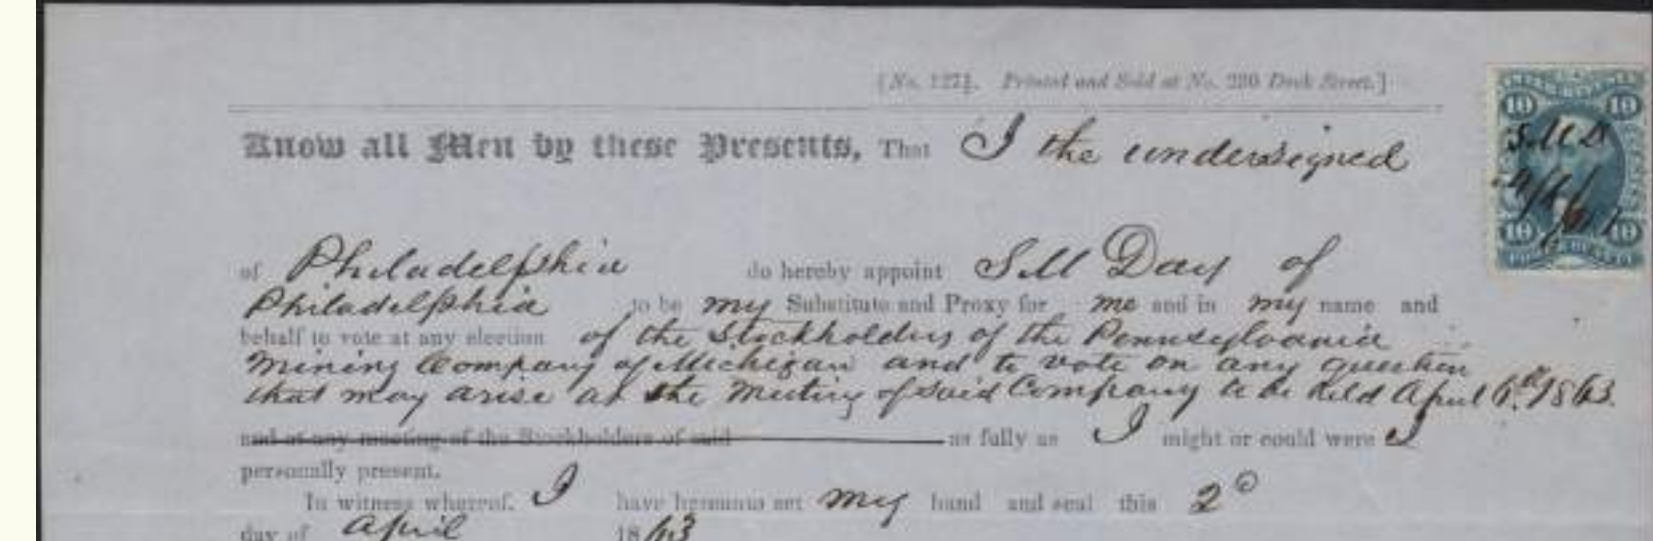 [No. 127½. Printed and Sold at No. 230 Dock Street.]
Know all Men by these Presents, That I the undersigned
of Philadelphia do hereby appoint S M Day of
Philadelphia to be my Substitute and Proxy for me and in my name and
behalf to vote at any election of the Stockholders of the Pennsylvania
Mining Company of Michigan and to vote on any question
that may arise at the Meeting of said Company to be held April 6th 1863.
and at any meeting of the Stockholders of said as fully as I might or could were I
personally present.
In witness whereof, I have hereunto set my hand and seal this 2d
day of April 1863
10 10
S M D
10 10